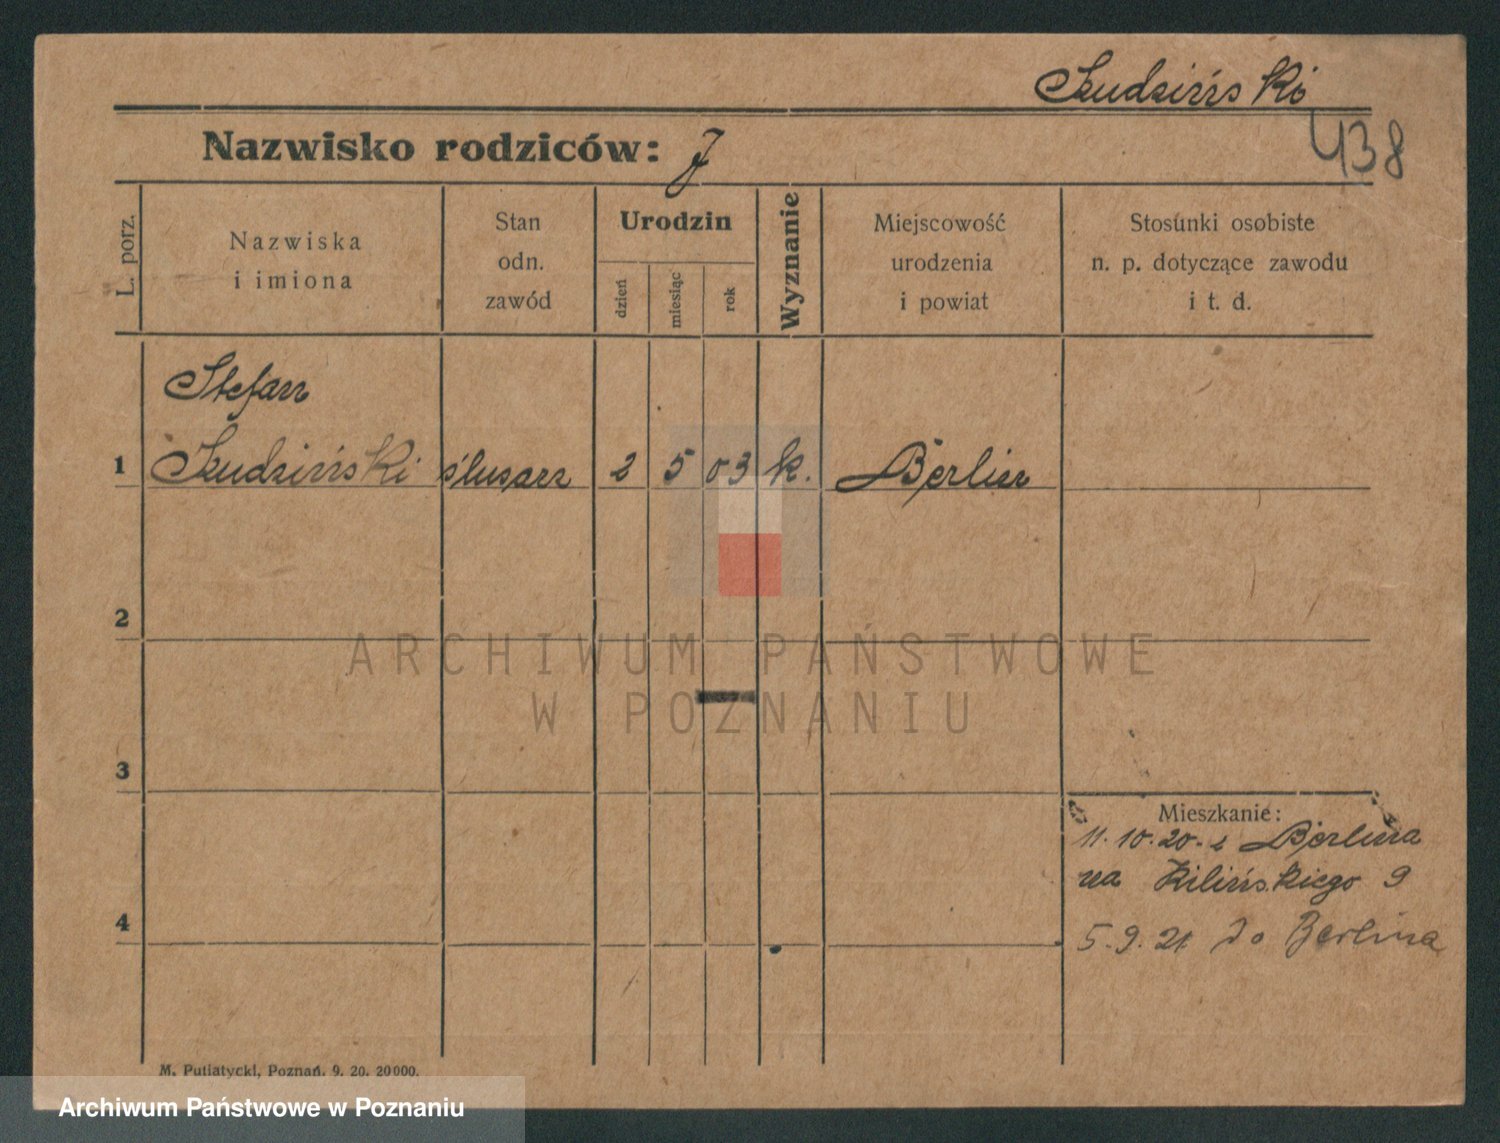 Szudziński
438
Nazwisko rodziców: J
L. porz.
Nazwiska
i imiona
Stan
odn.
zawód
Urodzin
dzień
miesiąc
rok
Wyznanie
Miejscowość
urodzenia
i powiat
Stosunki osobiste
n. p. dotyczące zawodu
i t. d.
Stefan
1 Szudziński ślusarz 2 5 03 k. Berlin
2
ARCHIWUM PAŃSTWOWE
W POZNANIU
3
Mieszkanie:
11.10.20. z Berlina
na Kilińskiego 9
4
5.9.21 do Berlina
M. Putiatycki, Poznań. 9. 20. 20000.
Archiwum Państwowe w Poznaniu